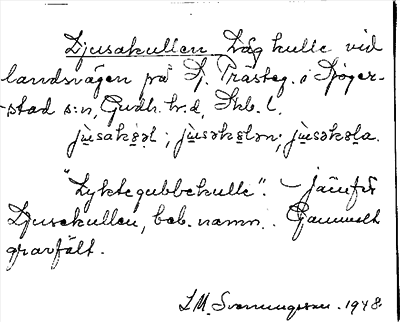 Ljusakullen Låg kulle vid
landsvägen på S. Prästeg. i Sjoger-
-stad s:n, Gudh. h:d, Skb. l.
jùsakəl ; jùsəkələn ; jùsəkəla.
"Lyktegubbekulle". – jämför
Ljusekullen, beb. namn. Gammalt
gravfält.
L.M. Svenungsson. 1948.